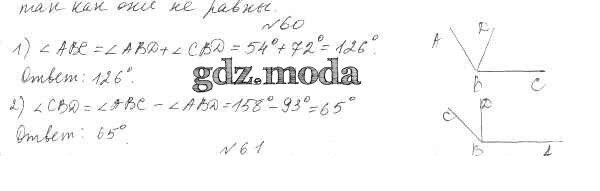 так как они не равны.
№60
1) ∠ABC = ∠ABD + ∠CBD = 54° + 72° = 126°.
Ответ: 126°.
gdz.moda
2) ∠CBD = ∠ABC - ∠ABD = 158° - 93° = 65°
Ответ: 65°.
№61
A D
B C
C D
B A